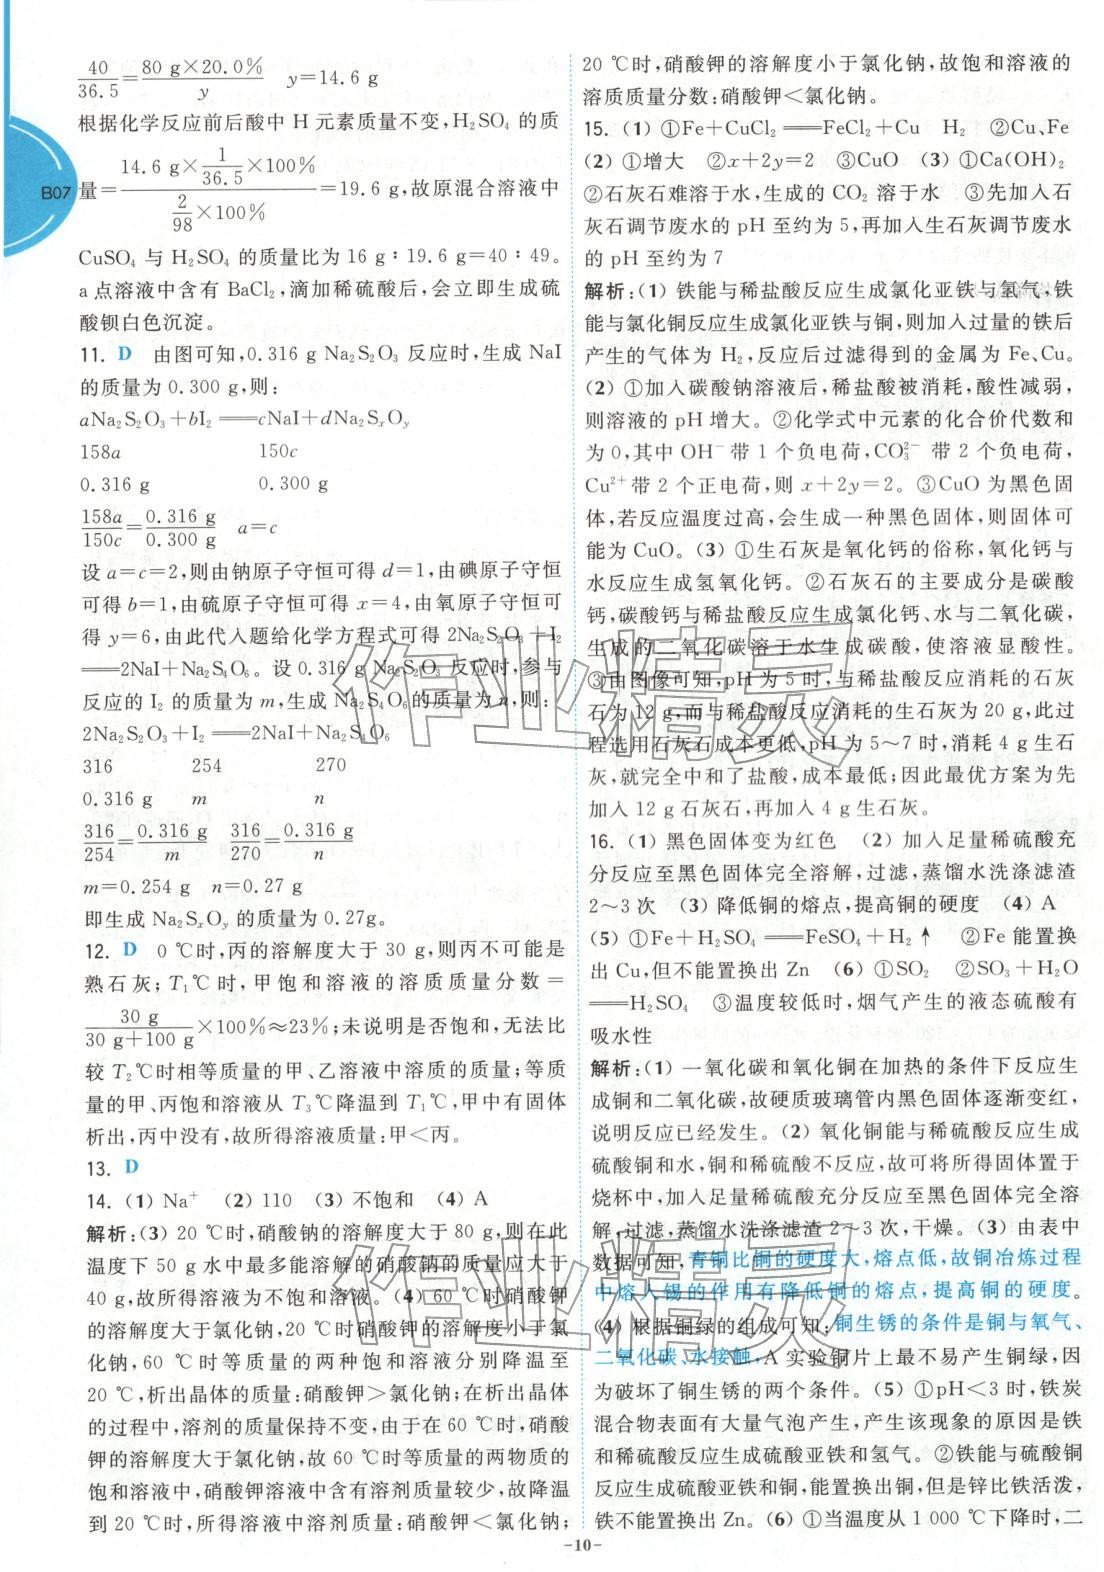 40/36.5=80 g×20.0%/y y=14.6 g
根据化学反应前后酸中 H 元素质量不变,H₂SO₄ 的质
B07
量=(14.6 g×1/36.5×100%)/(2/98×100%)=19.6 g,故原混合溶液中
CuSO₄ 与 H₂SO₄ 的质量比为 16 g∶19.6 g=40∶49。
a 点溶液中含有 BaCl₂,滴加稀硫酸后,会立即生成硫
酸钡白色沉淀。
11. D 由图可知,0.316 g Na₂S₂O₃ 反应时,生成 NaI
的质量为 0.300 g,则:
aNa₂S₂O₃+bI₂══cNaI+dNa₂SₓOᵧ
158a 150c
0.316 g 0.300 g
158a/150c=0.316 g/0.300 g a=c
设 a=c=2,则由钠原子守恒可得 d=1,由碘原子守恒
可得 b=1,由硫原子守恒可得 x=4,由氧原子守恒可
得 y=6,由此代入题给化学方程式可得 2Na₂S₂O₃+I₂
══2NaI+Na₂S₄O₆。设 0.316 g Na₂S₂O₃ 反应时,参与
反应的 I₂ 的质量为 m,生成 Na₂S₄O₆的质量为 n,则:
2Na₂S₂O₃+I₂══2NaI+Na₂S₄O₆
316 254 270
0.316 g m n
316/254=0.316 g/m 316/270=0.316 g/n
m=0.254 g n=0.27 g
即生成 Na₂SₓOᵧ 的质量为 0.27g。
12. D 0 ℃时,丙的溶解度大于 30 g,则丙不可能是
熟石灰;T₁℃时,甲饱和溶液的溶质质量分数=
30 g/(30 g+100 g)×100%≈23%;未说明是否饱和,无法比
较 T₂℃时相等质量的甲、乙溶液中溶质的质量;等质
量的甲、丙饱和溶液从 T₃℃降温到 T₁℃,甲中有固体
析出,丙中没有,故所得溶液质量:甲<丙。
13. D
14. (1) Na⁺ (2) 110 (3) 不饱和 (4) A
解析:(3) 20 ℃时,硝酸钠的溶解度大于 80 g,则在此
温度下 50 g 水中最多能溶解的硝酸钠的质量应大于
40 g,故所得溶液为不饱和溶液。(4) 60 ℃时硝酸钾
的溶解度大于氯化钠,20 ℃时硝酸钾的溶解度小于氯
化钠,60 ℃时等质量的两种饱和溶液分别降温至
20 ℃,析出晶体的质量:硝酸钾>氯化钠;在析出晶体
的过程中,溶剂的质量保持不变,由于在 60 ℃时,硝酸
钾的溶解度大于氯化钠,故 60 ℃时等质量的两物质的
饱和溶液中,硝酸钾溶液中含有溶剂质量较少,故降温
到 20 ℃时,所得溶液中溶剂质量:硝酸钾<氯化钠;
20 ℃时,硝酸钾的溶解度小于氯化钠,故饱和溶液的
溶质质量分数:硝酸钾<氯化钠。
15. (1) ①Fe+CuCl₂══FeCl₂+Cu H₂ ②Cu、Fe
(2) ①增大 ②x+2y=2 ③CuO (3) ①Ca(OH)₂
②石灰石难溶于水,生成的 CO₂ 溶于水 ③先加入石
灰石调节废水的 pH 至约为 5,再加入生石灰调节废水
的 pH 至约为 7
解析:(1) 铁能与稀盐酸反应生成氯化亚铁与氢气,铁
能与氯化铜反应生成氯化亚铁与铜,则加入过量的铁后
产生的气体为 H₂,反应后过滤得到的金属为 Fe、Cu。
(2) ①加入碳酸钠溶液后,稀盐酸被消耗,酸性减弱,
则溶液的 pH 增大。②化学式中元素的化合价代数和
为 0,其中 OH⁻ 带 1 个负电荷,CO₃²⁻ 带 2 个负电荷,
Cu²⁺带 2 个正电荷,则 x+2y=2。③CuO 为黑色固
体,若反应温度过高,会生成一种黑色固体,则固体可
能为 CuO。(3) ①生石灰是氧化钙的俗称,氧化钙与
水反应生成氢氧化钙。②石灰石的主要成分是碳酸
钙,碳酸钙与稀盐酸反应生成氯化钙、水与二氧化碳,
生成的二氧化碳溶于水生成碳酸,使溶液显酸性。
③由图像可知,pH 为 5 时,与稀盐酸反应消耗的石灰
石为 12 g,而与稀盐酸反应消耗的生石灰为 20 g,此过
程选用石灰石成本更低,pH 为 5~7 时,消耗 4 g 生石
灰,就完全中和了盐酸,成本最低;因此最优方案为先
加入 12 g 石灰石,再加入 4 g 生石灰。
16. (1) 黑色固体变为红色 (2) 加入足量稀硫酸充
分反应至黑色固体完全溶解,过滤,蒸馏水洗涤滤渣
2~3 次 (3) 降低铜的熔点,提高铜的硬度 (4) A
(5) ①Fe+H₂SO₄══FeSO₄+H₂↑ ②Fe 能置换
出 Cu,但不能置换出 Zn (6) ①SO₂ ②SO₃+H₂O
══H₂SO₄ ③温度较低时,烟气产生的液态硫酸有
吸水性
解析:(1) 一氧化碳和氧化铜在加热的条件下反应生
成铜和二氧化碳,故硬质玻璃管内黑色固体逐渐变红,
说明反应已经发生。(2) 氧化铜能与稀硫酸反应生成
硫酸铜和水,铜和稀硫酸不反应,故可将所得固体置于
烧杯中,加入足量稀硫酸充分反应至黑色固体完全溶
解,过滤,蒸馏水洗涤滤渣 2~3 次,干燥。(3) 由表中
数据可知,青铜比铜的硬度大,熔点低,故铜冶炼过程
中熔入锡的作用有降低铜的熔点,提高铜的硬度。
(4) 根据铜绿的组成可知:铜生锈的条件是铜与氧气、
二氧化碳、水接触,A 实验铜片上最不易产生铜绿,因
为破坏了铜生锈的两个条件。(5) ①pH<3 时,铁炭
混合物表面有大量气泡产生,产生该现象的原因是铁
和稀硫酸反应生成硫酸亚铁和氢气。②铁能与硫酸铜
反应生成硫酸亚铁和铜,能置换出铜,但是锌比铁活泼,
铁不能置换出 Zn。(6) ①当温度从 1 000 ℃下降时,二
-10-
作业精灵
作业精灵